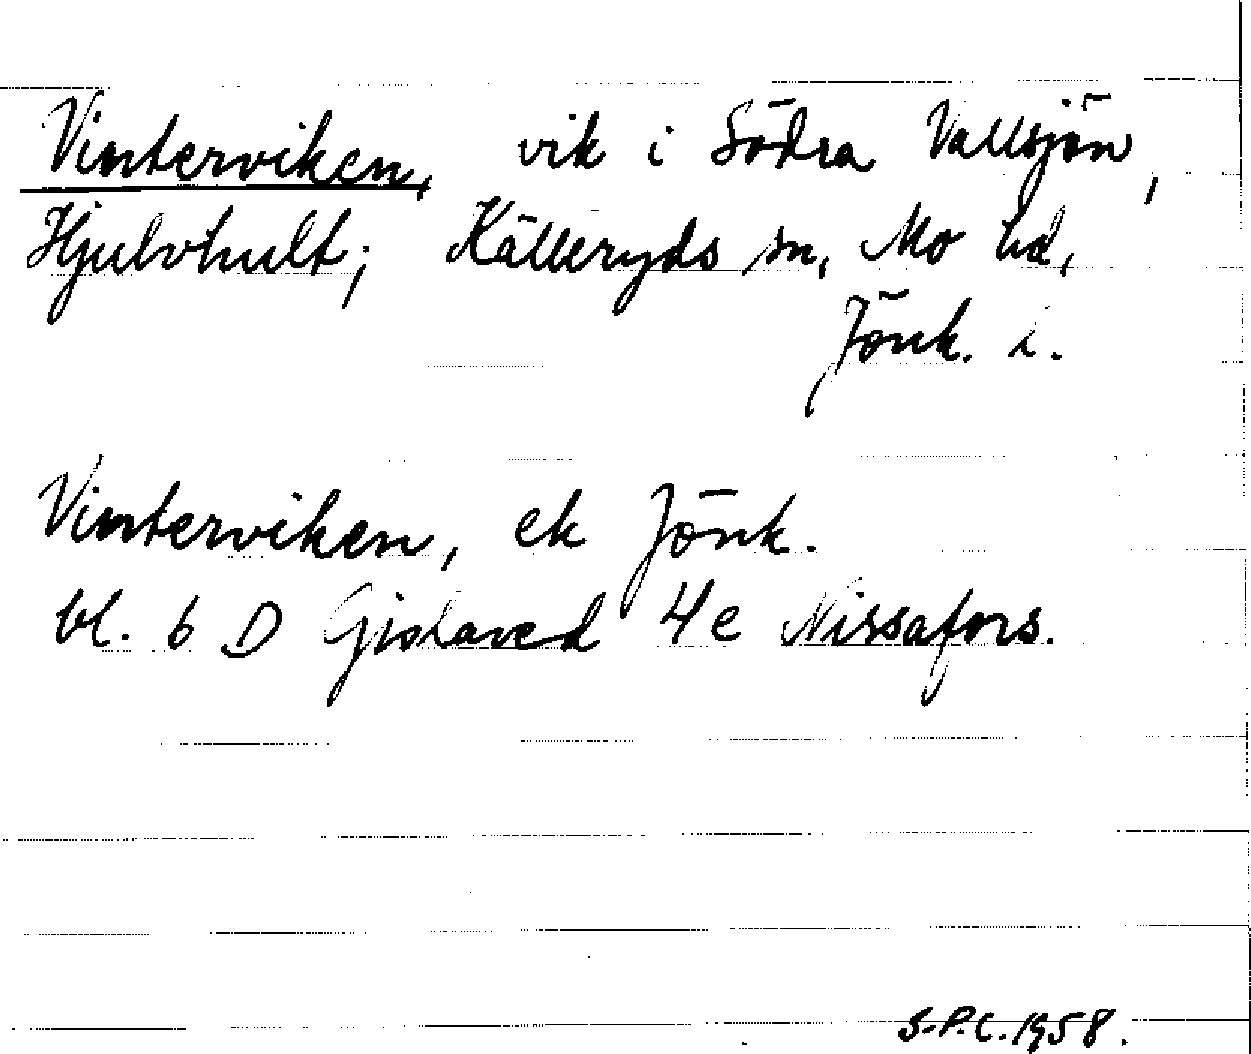 Vinterviken, vik i Södra Vallsjön,
Hjulvhult; Källeryds sn, Mo hd,
Jönk. l.
Vinterviken, ek Jönk.
bl. 6 D Gislaved 4e Nissafors.
S-P.C. 1958.